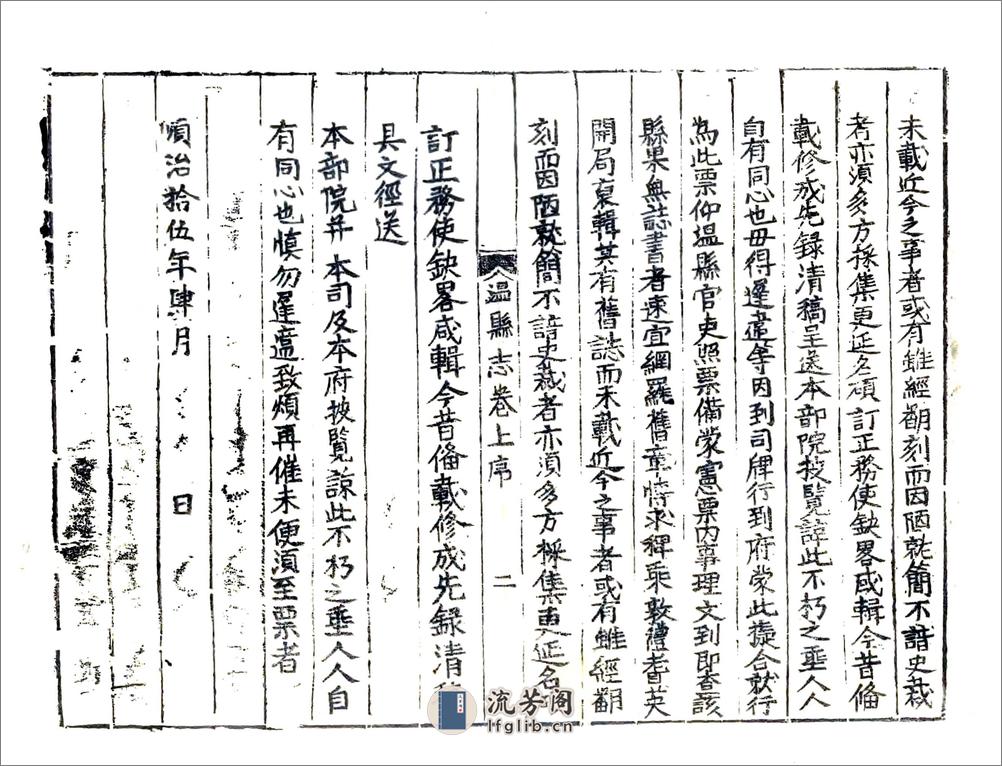 未載近今之事者或有雖經翻刻而因陋就簡不諳史裁
者亦須多方採集更延名碩訂正務使缺畧咸輯今昔俻
載修成先録清稿呈送本部院披覧諒此不朽之垂人人
自有同心也毋得遲違等因到司牌行到府蒙此擬合就行
為此票仰溫縣官吏照票備蒙憲票内事理文到即查該
縣果無誌書者速宜網羅舊章博求稗乘敦禮耆英
開局裒輯其有舊誌而未載近今之事者或有雖經翻
刻而因陋就簡不諳史裁者亦須多方採集更延名
溫縣志卷上序 二
訂正務使缺畧咸輯今昔俻載修成先録清
具文徑送
本部院并本司及本府披覧諒此不朽之垂人人自
有同心也慎勿遲違致煩再催未便須至票者
順治拾伍年肆月 日
流芳阁
lfglib.cn